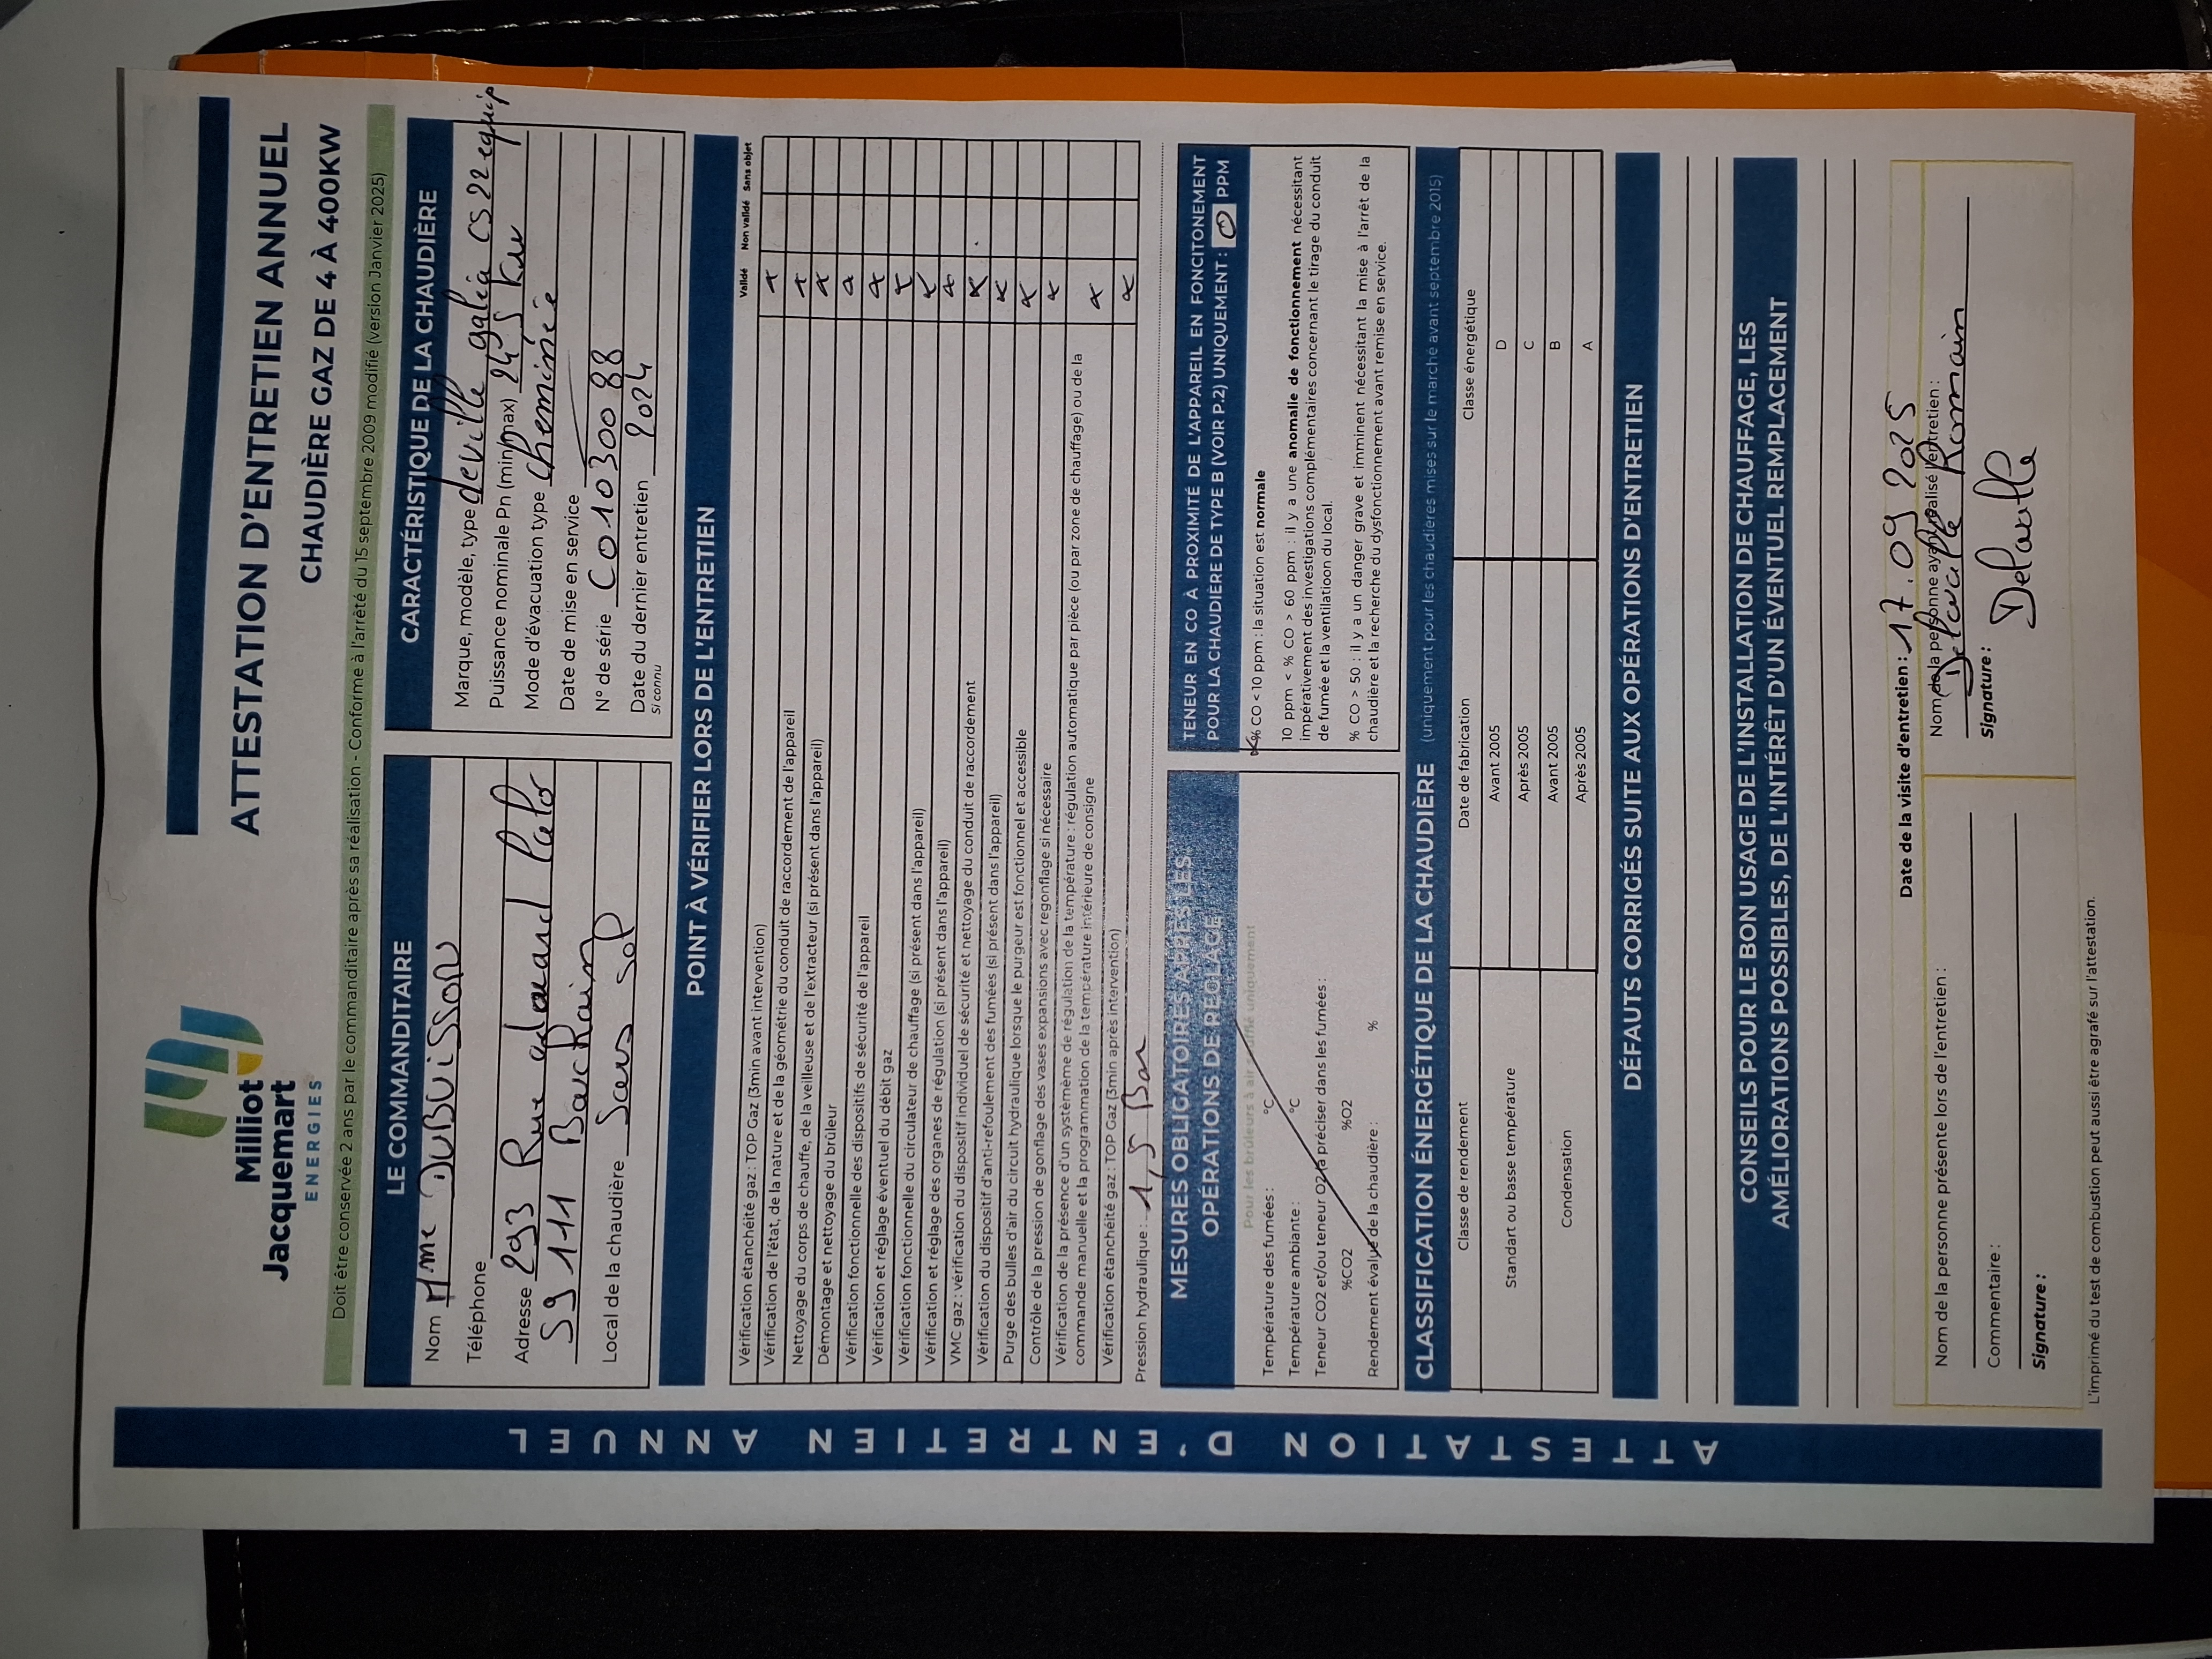 Milliot
Jacquemart
ENERGIES
ATTESTATION D'ENTRETIEN ANNUEL
CHAUDIÈRE GAZ DE 4 À 400KW
Doit être conservée 2 ans par le commanditaire après sa réalisation - Conforme à l'arrêté du 15 septembre 2009 modifié (version Janvier 2025)
LE COMMANDITAIRE
Nom Mme DUBUISSON
Téléphone
Adresse 293 Rue edouard Lalo
59 111 Bouchain
Local de la chaudière Sous sol
CARACTÉRISTIQUE DE LA CHAUDIÈRE
Marque, modèle, type deville galia CS 22 equip
Puissance nominale Pn (min/max) 24,5 kw
Mode d'évacuation type cheminée
Date de mise en service
N° de série C010300 88
Date du dernier entretien 2024
si connu
POINT À VÉRIFIER LORS DE L'ENTRETIEN
Validé Non validé Sans objet
Vérification étanchéité gaz : TOP Gaz (3min avant intervention) x
Vérification de l'état, de la nature et de la géométrie du conduit de raccordement de l'appareil x
Nettoyage du corps de chauffe, de la veilleuse et de l'extracteur (si présent dans l'appareil) x
Démontage et nettoyage du brûleur x
Vérification fonctionnelle des dispositifs de sécurité de l'appareil x
Vérification et réglage éventuel du débit gaz x
Vérification fonctionnelle du circulateur de chauffage (si présent dans l'appareil) x
Vérification et réglage des organes de régulation (si présent dans l'appareil) x
VMC gaz : vérification du dispositif individuel de sécurité et nettoyage du conduit de raccordement x
Vérification du dispositif d'anti-refoulement des fumées (si présent dans l'appareil) x
Purge des bulles d'air du circuit hydraulique lorsque le purgeur est fonctionnel et accessible x
Contrôle de la pression de gonflage des vases expansions avec regonflage si nécessaire x
Vérification de la présence d'un systèmème de régulation de la température : régulation automatique par pièce (ou par zone de chauffage) ou de la
commande manuelle et la programmation de la température intérieure de consigne x
Vérification étanchéité gaz : TOP Gaz (3min après intervention) x
Pression hydraulique : 1,5 Bar
MESURES OBLIGATOIRES APRÈS LES
OPÉRATIONS DE RÉGLAGE
Pour les brûleurs à air soufflé uniquement
Température des fumées : °C
Température ambiante : °C
Teneur CO2 et/ou teneur O2 à préciser dans les fumées :
%CO2 %O2
Rendement évalué de la chaudière : %
TENEUR EN CO À PROXIMITÉ DE L'APPAREIL EN FONCITONEMENT
POUR LA CHAUDIÈRE DE TYPE B (VOIR P.2) UNIQUEMENT : 0 PPM
x % CO < 10 ppm : la situation est normale
10 ppm < % CO > 60 ppm : il y a une anomalie de fonctionnement nécessitant
impérativement des investigations complémentaires concernant le tirage du conduit
de fumée et la ventilatioon du local.
% CO > 50 : il y a un danger grave et imminent nécessitant la mise à l'arrêt de la
chaudière et la recherche du dysfonctionnement avant remise en service.
CLASSIFICATION ÉNERGÉTIQUE DE LA CHAUDIÈRE (uniquement pour les chaudières mises sur le marché avant septembre 2015)
Classe de rendement Date de fabrication Classe énergétique
Standart ou basse température Avant 2005 D
Après 2005 C
Condensation Avant 2005 B
Après 2005 A
DÉFAUTS CORRIGÉS SUITE AUX OPÉRATIONS D'ENTRETIEN
CONSEILS POUR LE BON USAGE DE L'INSTALLATION DE CHAUFFAGE, LES
AMÉLIORATIONS POSSIBLES, DE L'INTÉRÊT D'UN ÉVENTUEL REMPLACEMENT
Date de la visite d'entretien : 17.09.2025
Nom de la personne présente lors de l'entretien :
Commentaire :
Signature :
Nom de la personne ayant réalisé l'entretien :
Delavalle Romain
Signature :
Delavalle
L'imprimé du test de combustion peut aussi être agrafé sur l'attestation.
ATTESTATION D'ENTRETIEN ANNUEL